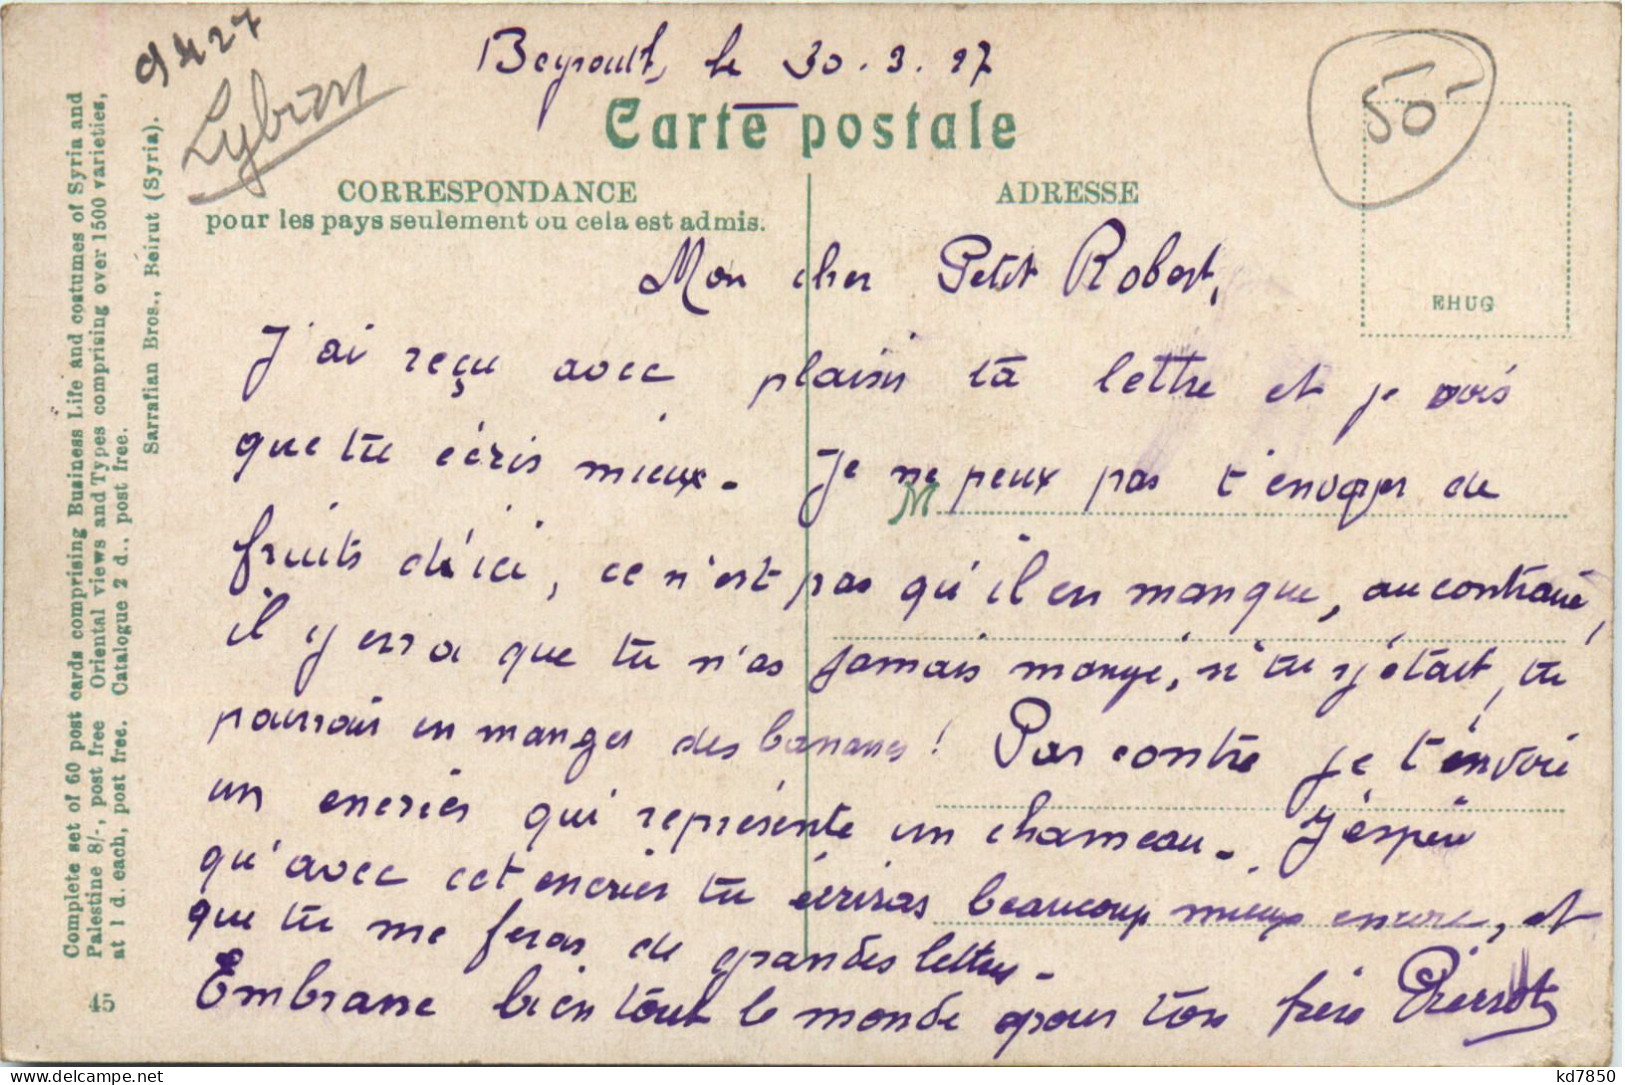 9 4 27
Lyban
Beyrouth, le 30.3.27
50-
Carte postale
CORRESPONDANCE
pour les pays seulement ou cela est admis.
ADRESSE
EHUG
Mon cher Petit Robert,
J'ai reçu avec plaisir ta lettre et je vois
que tu écris mieux. Je ne peux pas t'envoyer de
M
fruits d'ici, ce n'est pas qu'il en manque, au contraire,
il y en a que tu n'as jamais mangé, si tu y était, tu
pourrais en manger des bananes! Par contre je t'envoie
un encrier qui représente un chameau. J'espère
qu'avec cet encrier tu écriras beaucoup mieux encore, et
que tu me feras de grandes lettres.
Embrasse bien tout le monde pour ton frère Pierrot
Complete set of 60 post cards comprising Business Life and costumes of Syria and
Palestine 8/-, post free Oriental views and Types comprising over 1500 varieties,
at 1 d. each, post free. Catalogue 2 d., post free.
Sarrafian Bros., Beirut (Syria).
45
kd7850